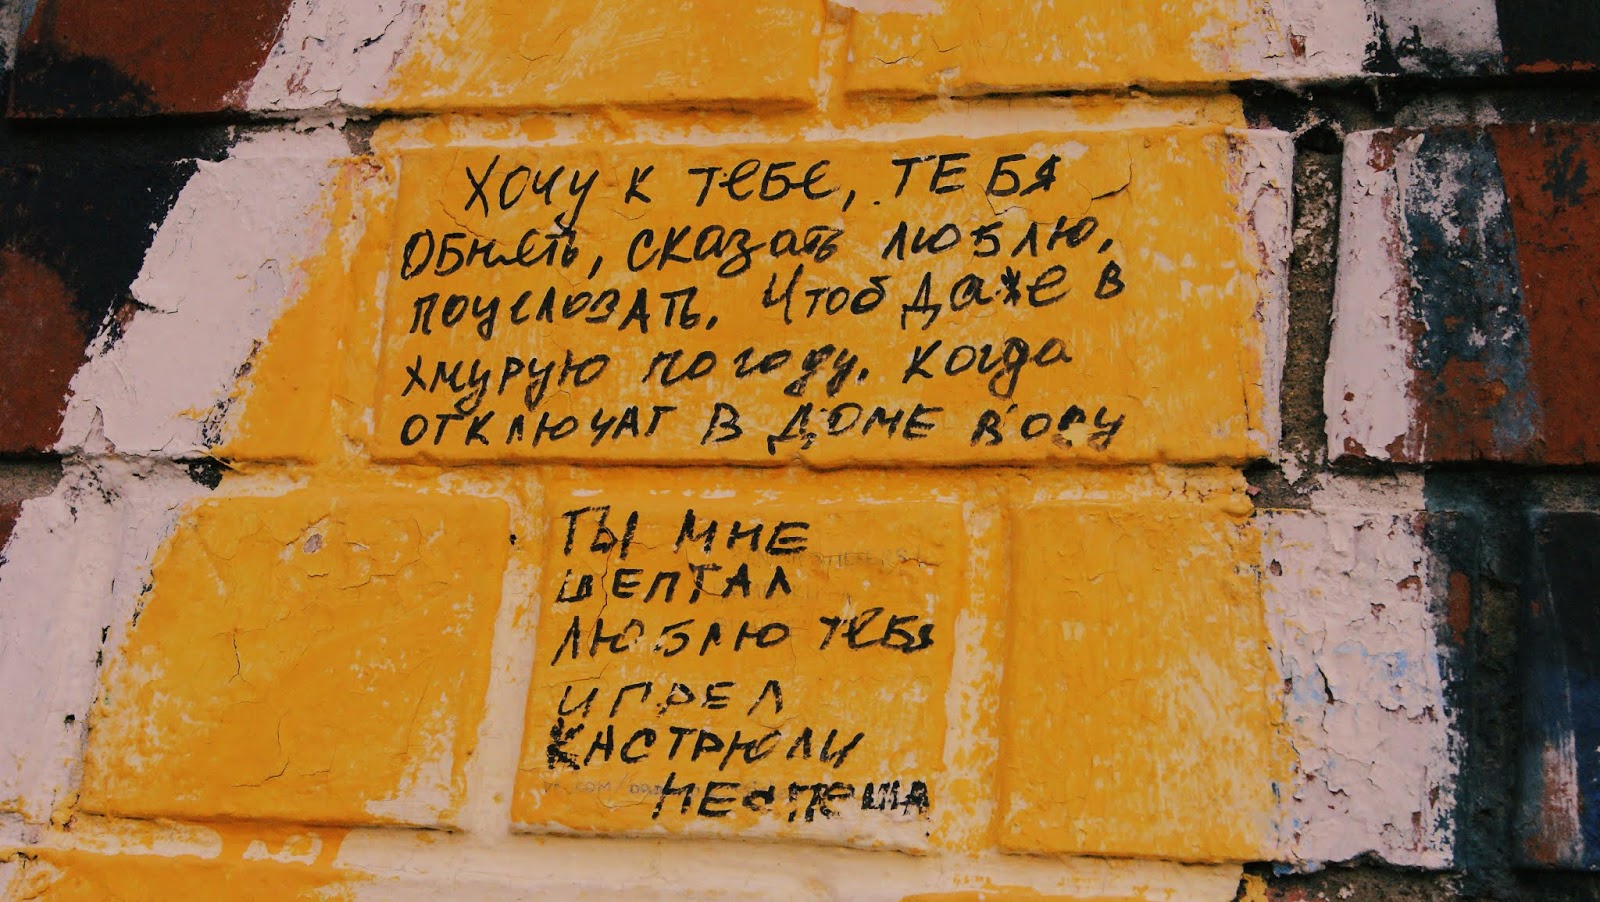 Хочу к тебе, тебя
обнять, сказать люблю,
поцеловать. Чтоб даже в
хмурую погоду. Когда
отключат в доме воду
ТЫ МНЕ
ШЕПТАЛ
ЛЮБЛЮ ТЕБЯ
И ГРЕЛ
КАСТРЮЛИ
НЕ СПЕША